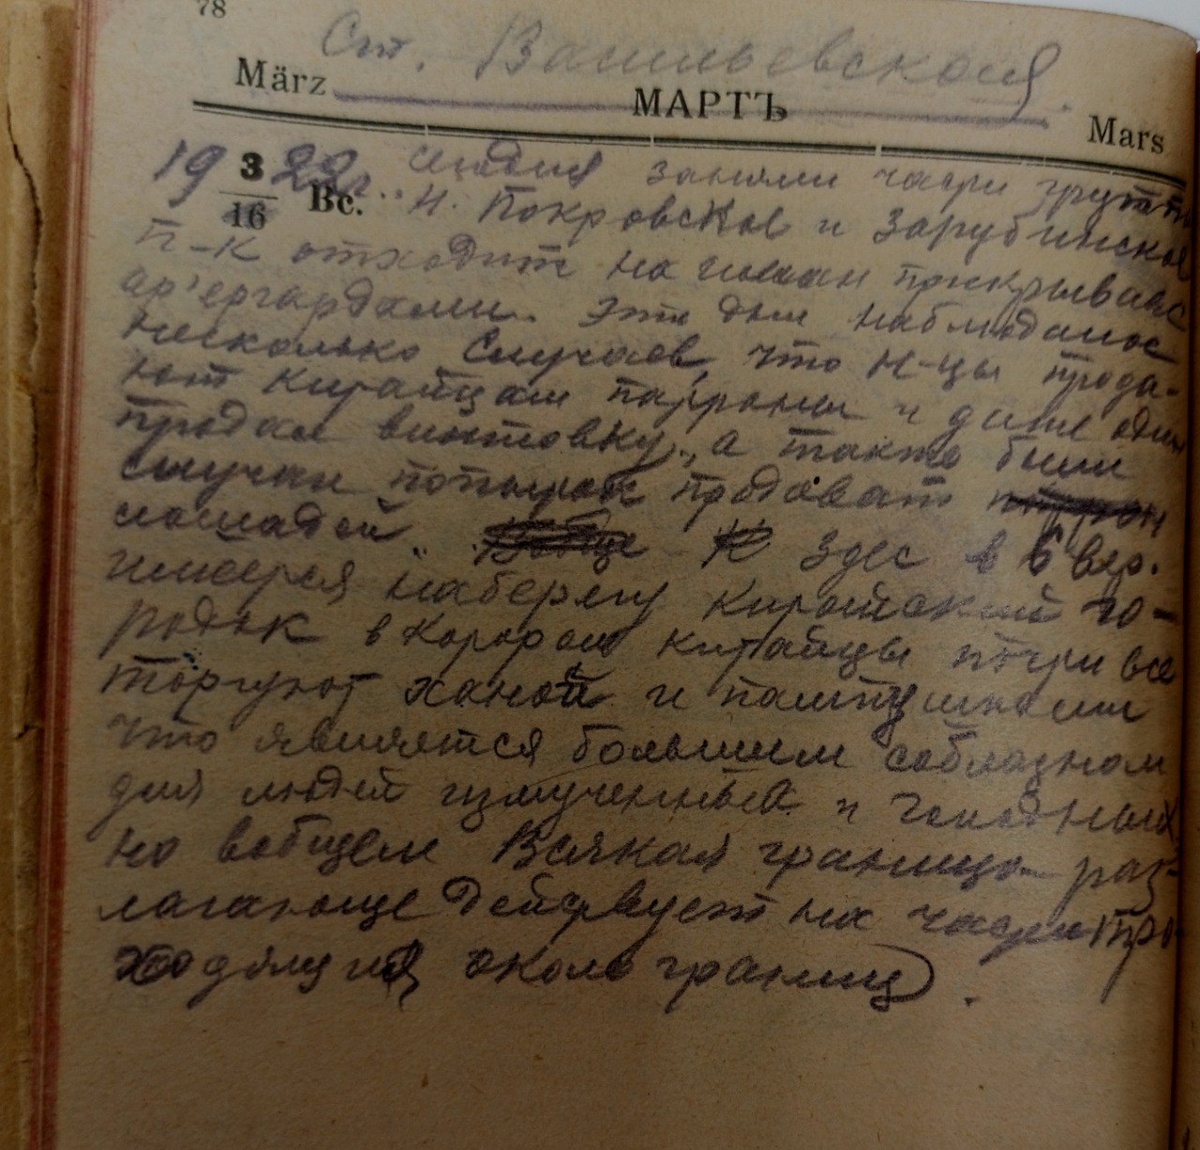 78
Ст. Васильевская.
März МАРТЪ Mars
19 3/16 22г. Вс. Сегодня заняли части группы
Н. Покровское и Зарубинское
П-к отходит на прикрываяс
ар'ергардами. Эти дни наблюдалос
несколько случаев, что н-цы прода-
ют Китайцам патроны и даже один
продал винтовку, а также были
случаи попыток продават
лошадей. Здес в 6 вер.
имеется наберегу Китайский го-
родок в котором китайцы почти все
торгуют ханой и пампушками
что является большим соблазном
для людей измученных и голодных
но вобщем Всякая граница раз-
лагающе действует на части про-
ходящия около границ.